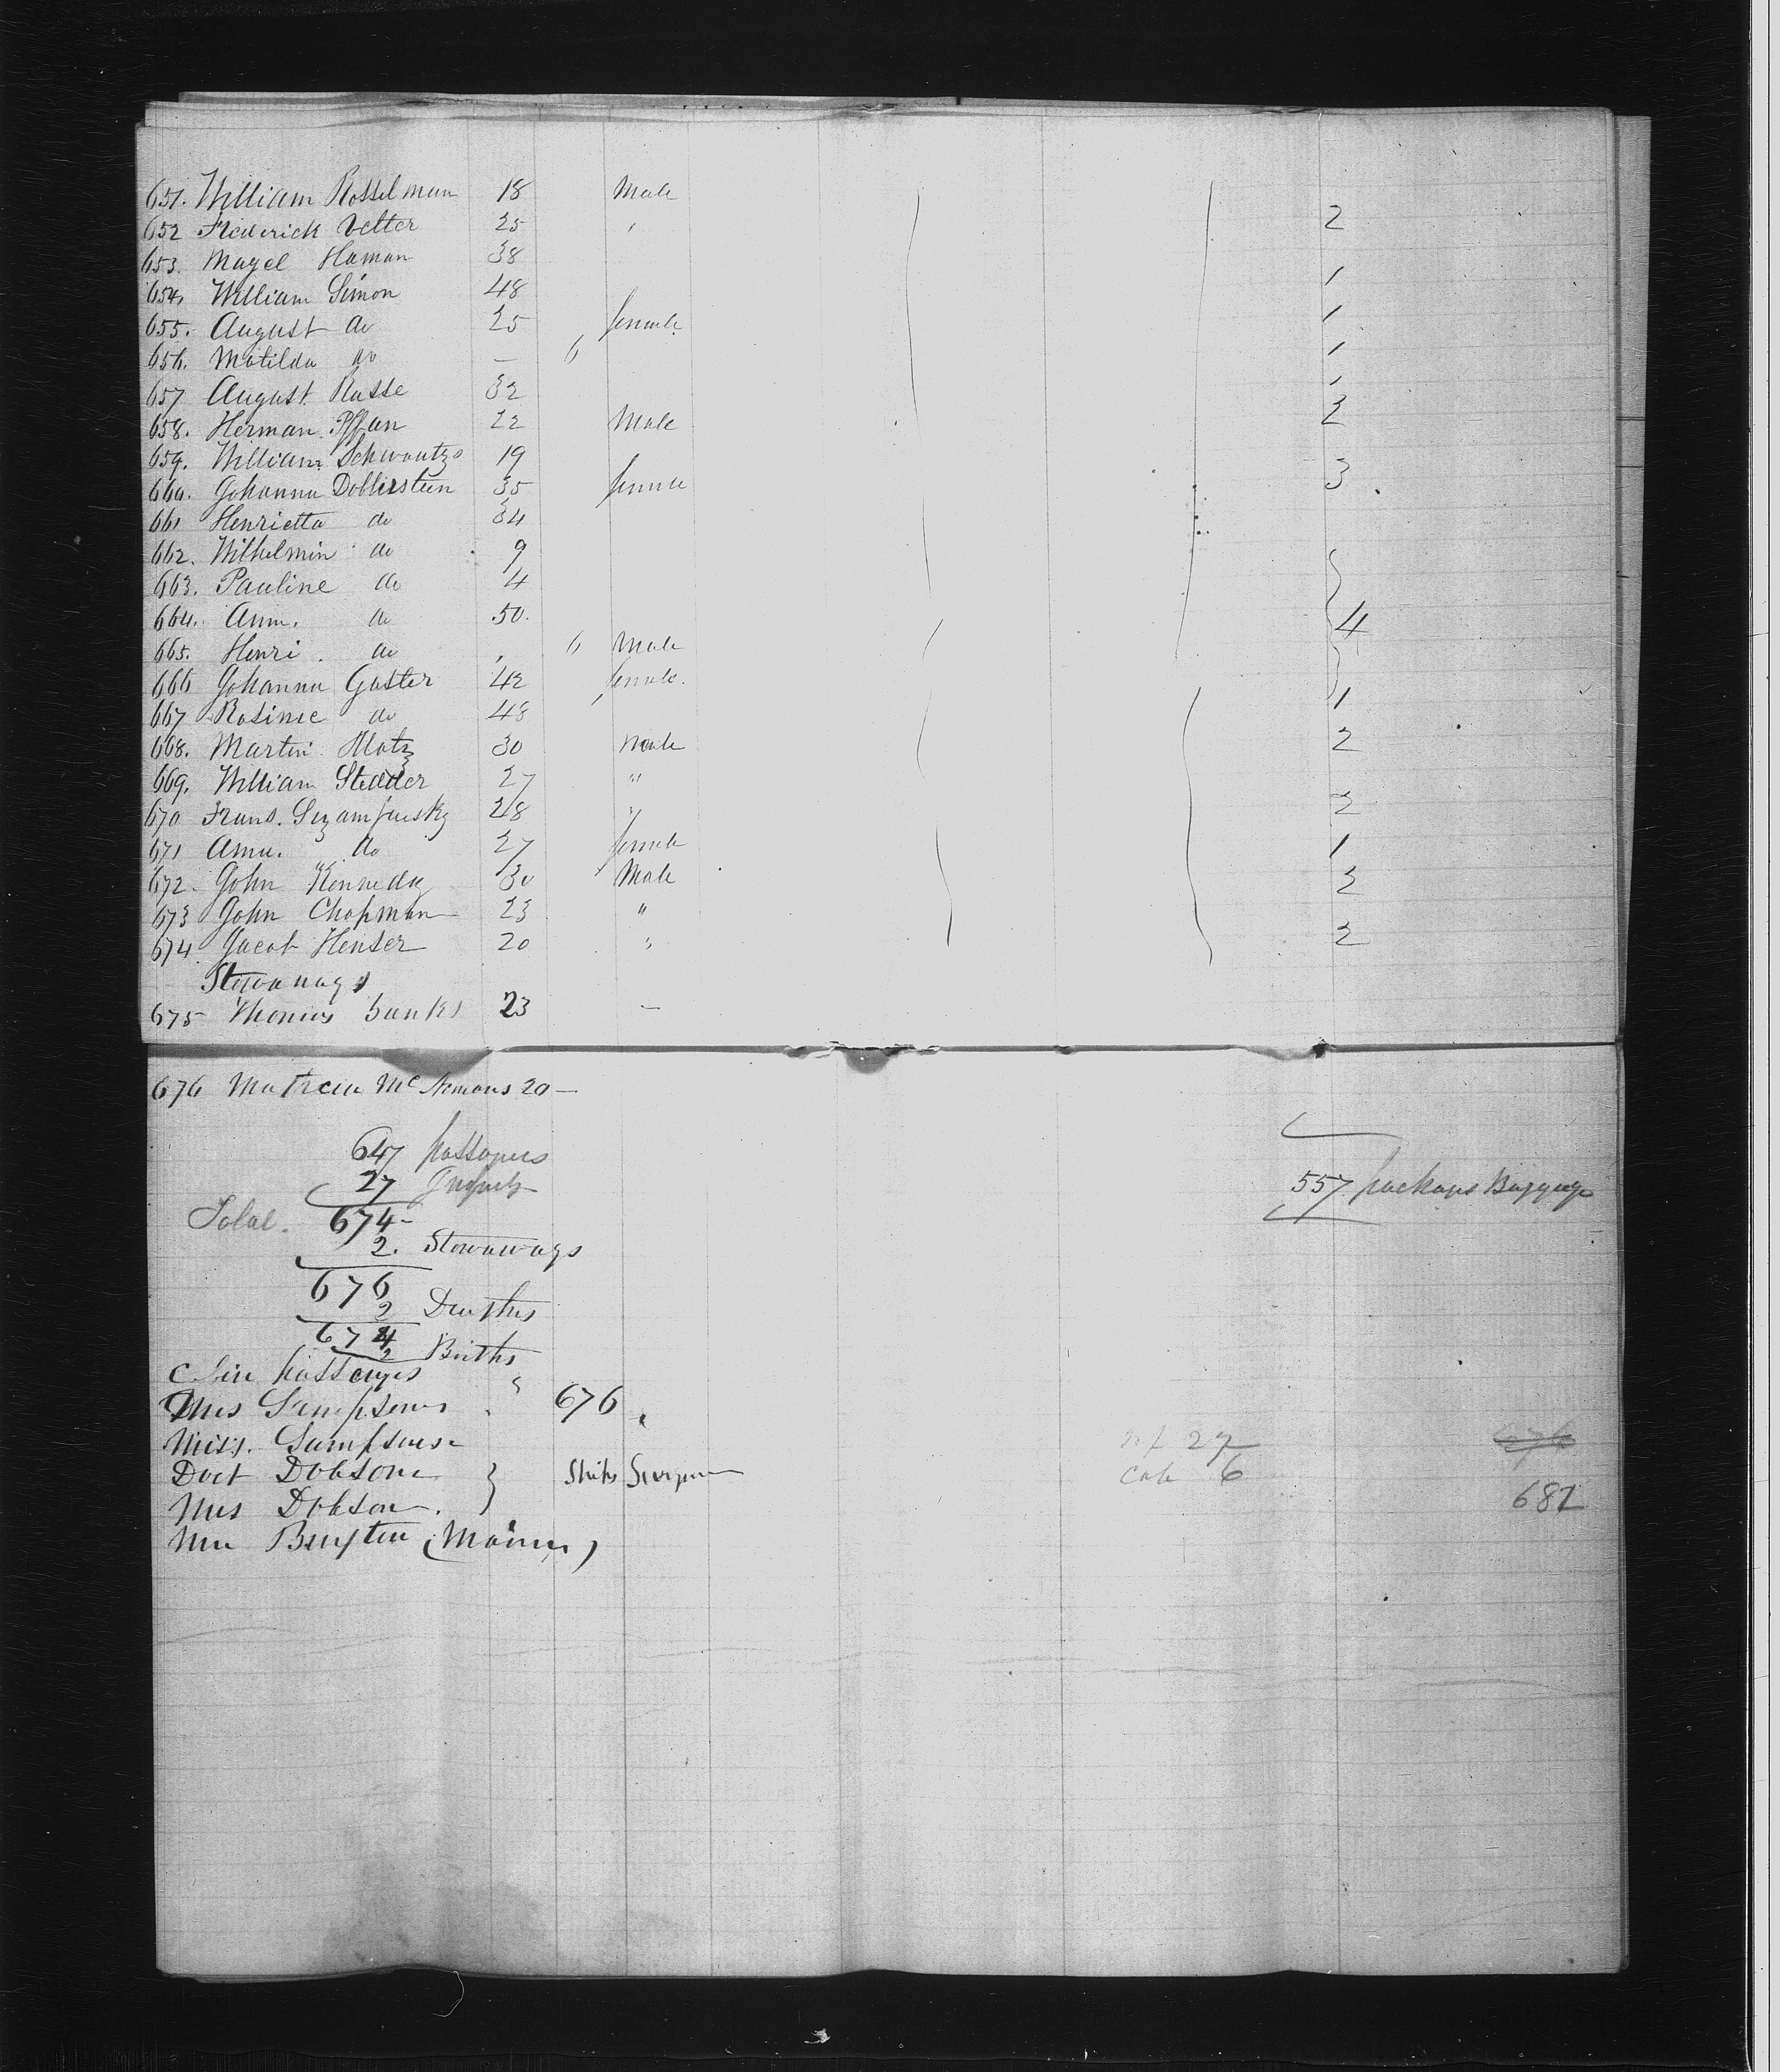 651. William Rosselman 18 Male
652 Frederick Velter 25 " 2
653. Magel Haman 38
654, William Simon 48 1
655. August do 25 female 1
656. Matilda do — 6 1
657 August Russe 32 "
658. Herman Pffan 22 Male 2
659. William Schwantzs 19
660. Johanna Dobberstein 35 female 3
661 Henrietta do 34
662. Wilhelmin do 9
663. Pauline do 4
664. Ann. do 50. 4
665. Henri. do " 6 Male
666 Johanna Gaster 42 female. 1
667 Rosinie do 48
668. Martin Klotz 30 Male 2
669. William Stedder 27 "
670 Frans. 28 " 2
671 Anna. do 27 female 1
672. John Kennedy 30 Male 2
673 John Chapman 23 "
674 Jacob Henser 20 " 2
Stowaways
675 Thomas Banks 23 —
676 Mc 20 —
647 passengers
27 Infants
Total. 674 -
2. Stowaways
557 packages Baggage
676
2 Deaths
674
2 Births
Cabin passengers "
Mrs Sampson 676
Miss. Sampson
Doct Dobson } Ships Surgeon
Mrs Dobson.
Mr (
inf 27 676
Cab 6
681